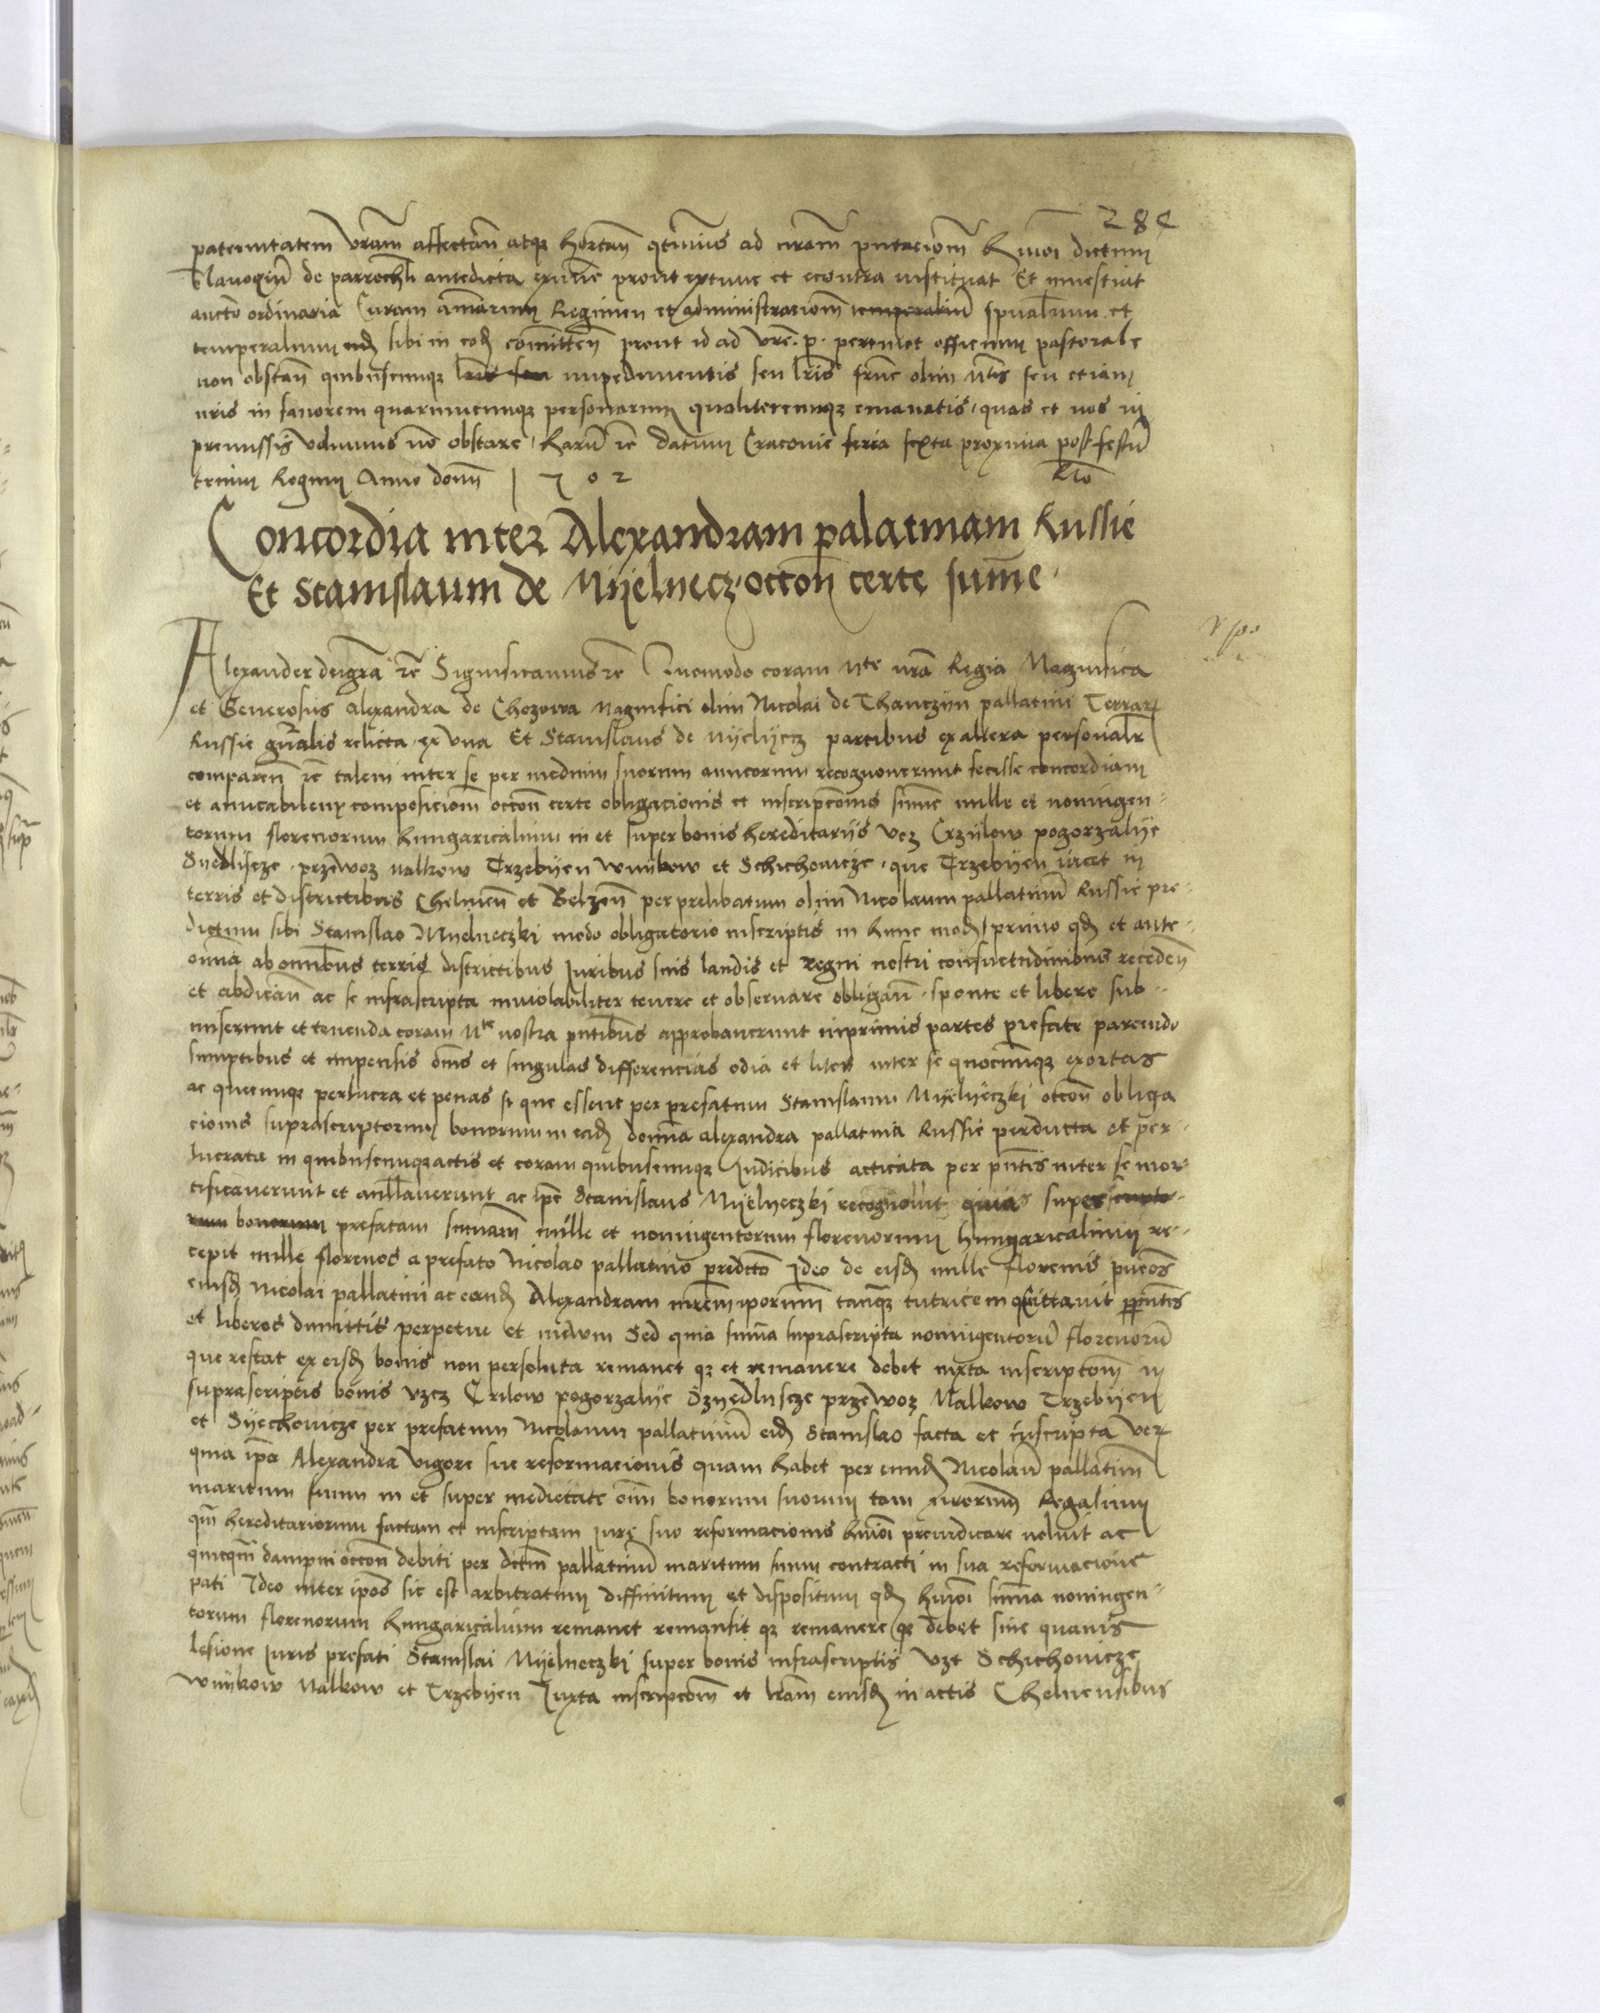 284
paternitatem vram affectan atqz hortan qtenus ad nram pntacionem huiōi dictum
de parrochli antedicta prout extunc et econtra instituat Et inuestiat
aucte ordinaria Curam animarum Regimen et administracionem temporalium spualium et
temporalium eidem sibi in eodem committen prout id ad vre. p. pertinet officium pastorale
non obstan quibuscumqz lris seu impedimentis seu lris hinc olim ntis seu etiam
nris in fauorem quarumcumqz personarum qualitercumqz emanatis, quas et nos in
premissis volumus nō obstare, harū rē datum Cracouie feria sexta proxima post festū
trium Regum Anno domi 1 5 0 2 Rto
Concordia inter Alexandram palatinam Russie
Et Stanislaum de Myelnecz occōn certe sume.
Alexander dei gra rē Significamus rē Quomodo coram Mte nra Regia Magnifica
et Generosus Alexandra de Chozowa Magnifici olim Nicolai de Thanczyn pallatini Terrarum
Russie gnalis relicta ex vna Et Stanislaus de Myelyecz partibus ex altera personalr
comparen rē talem inter se per medium suorum amicorum recognouerunt fecisse concordiam
et amicabilem composicionem occōn certe obligacionis et inscripcionis summe mille et noningen-
torum florenorum hungaricalium in et super bonis hereditariis vcz Crzylow pogorzalye
Syedlyscze przewoz Malkow Trzebyen Wnykow et Schichowicze, que Trzebyen iacet in
terris et districtibus Chelmen et Belzen per prelibatum olim Nicolaum pallatinum Russie pre-
dictum sibi Stanislao Myelneczki modo obligatorio inscriptis in hunc modum, primo quod et ante
omnia ab omnibus terris districtibus Iuribus suis laudis et regni nostri consuetudinibus receden
et abdican ac se infrascripta inuiolabiliter tenere et obseruare obligan, sponte et libere sub-
miserunt et tenenda coram Mte nostra pntibus approbauerunt inprimis partes prefate parcendo
sumptibus et impensis oms et singulas differencias odia et lites inter se quocumqz exortas
ac quecumqz perlucra et penas si que essent per prefatum Stanislaum Myelyeczki occōn obliga
cionis suprascriptorum bonorum in eadem domina Alexandra pallatina Russie perducta et per-
lucrata in quibuscumqz actis et coram quibuscumqz Iudicibus acticata per pntis inter se mor-
tificauerunt et anllauerunt ac ipe Stanislaus Myelneczki recognouit quia super scripto-
rum bonorum prefatam summam mille et noningentorum florenorum hungaricalium re-
cepit mille florenos a prefato Nicolao pallatino predicto Ideo de eisdem mille florenis pueros
eiusdem Nicolai pallatini ac eandem Alexandram mrem ipsorum tanqz tutricem quittauit p pntes
et liberos dimittit perpetue et in euum Sed quia summa suprascripta noningentorum florenorum
que restat ex eisdem bonis non persoluta remanet qz et remanere debet iuxta inscriptcom in
suprascriptis bonis vzcz Crilow pogorzalye Szyedlyscze przewoz Malkow Trzebyen
et Syechowicze per prefatum Nicolaum pallatinum eidem Stanislao facta et inscripta Ver
quia ipa Alexandra vigore sue reformacionis quam habet per eundem Nicolaum pallatinum
maritum suum in et super medietate oim bonorum suorum tam Regalium
qm hereditariorum factam et inscriptam Iure suo reformacionis huiōi preiudicare noluit ac
quicqm dampni occōn debiti per dctm pallatinum maritum suum contracti in sua reformacione
pati Ideo inter ipos sic est arbitratum diffinitum et dispositum quod huiōi summa noningen-
torum florenorum hungaricalium remanet remansit qz remanere qz debet sine quauis
lesione Iuris prefati Stanislai Myelneczki super bonis infrascriptis vzt Schichowicze
Wnykow Malkow et Trzebyen Iuxta inscripcōm et lram eiusdem in actis Chelmensibus